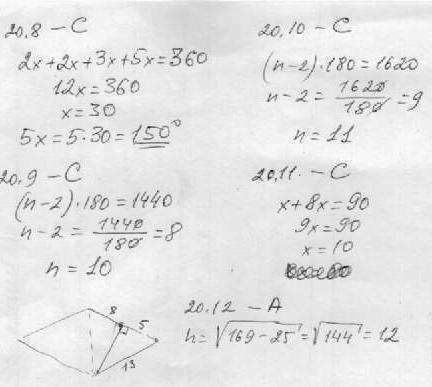 20,8 – C
2x+2x+3x+5x=360
12x=360
x=30
5x=5·30=150°
20,9 – C
(n-2)·180=1440
n-2=1440/180=8
n=10
20,10 – C
(n-2)·180=1620
n-2=1620/180=9
n=11
20,11. – C
x+8x=90
9x=90
x=10
8
5
13
20.12 – A
h=√169-25=√144=12